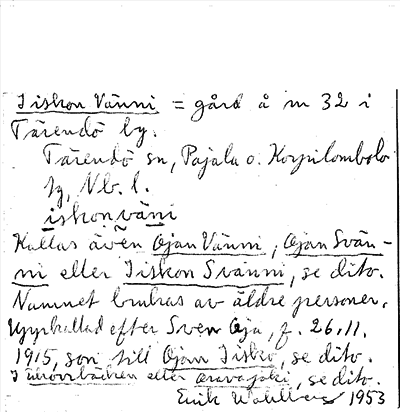 Iiskon Vänni = gård å nr 32 i
Tärendö by.
Tärendö sn, Pajala o. Korpilombolo
tg, Nb. l.
iskonväni
Kallas även Ojan Vänni, Ojan Svän-
ni eller Iiskon Svänni, se dito.
Namnet brukas av äldre personer.
Uppkallad efter Sven Oja, f. 26.11.
1915, son till Ojan Iisko, se dito.
eller Oravajoki, se dito.
Erik Wahlberg 1953